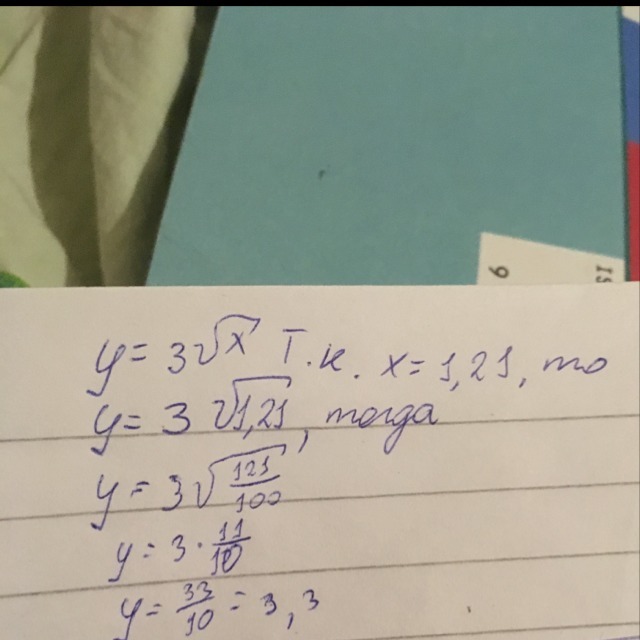 6
SI
y = 3√x Т.к. x = 1,21, то
y = 3√1,21, тогда
y = 3√121/100
y = 3 · 11/10
y = 33/10 = 3,3